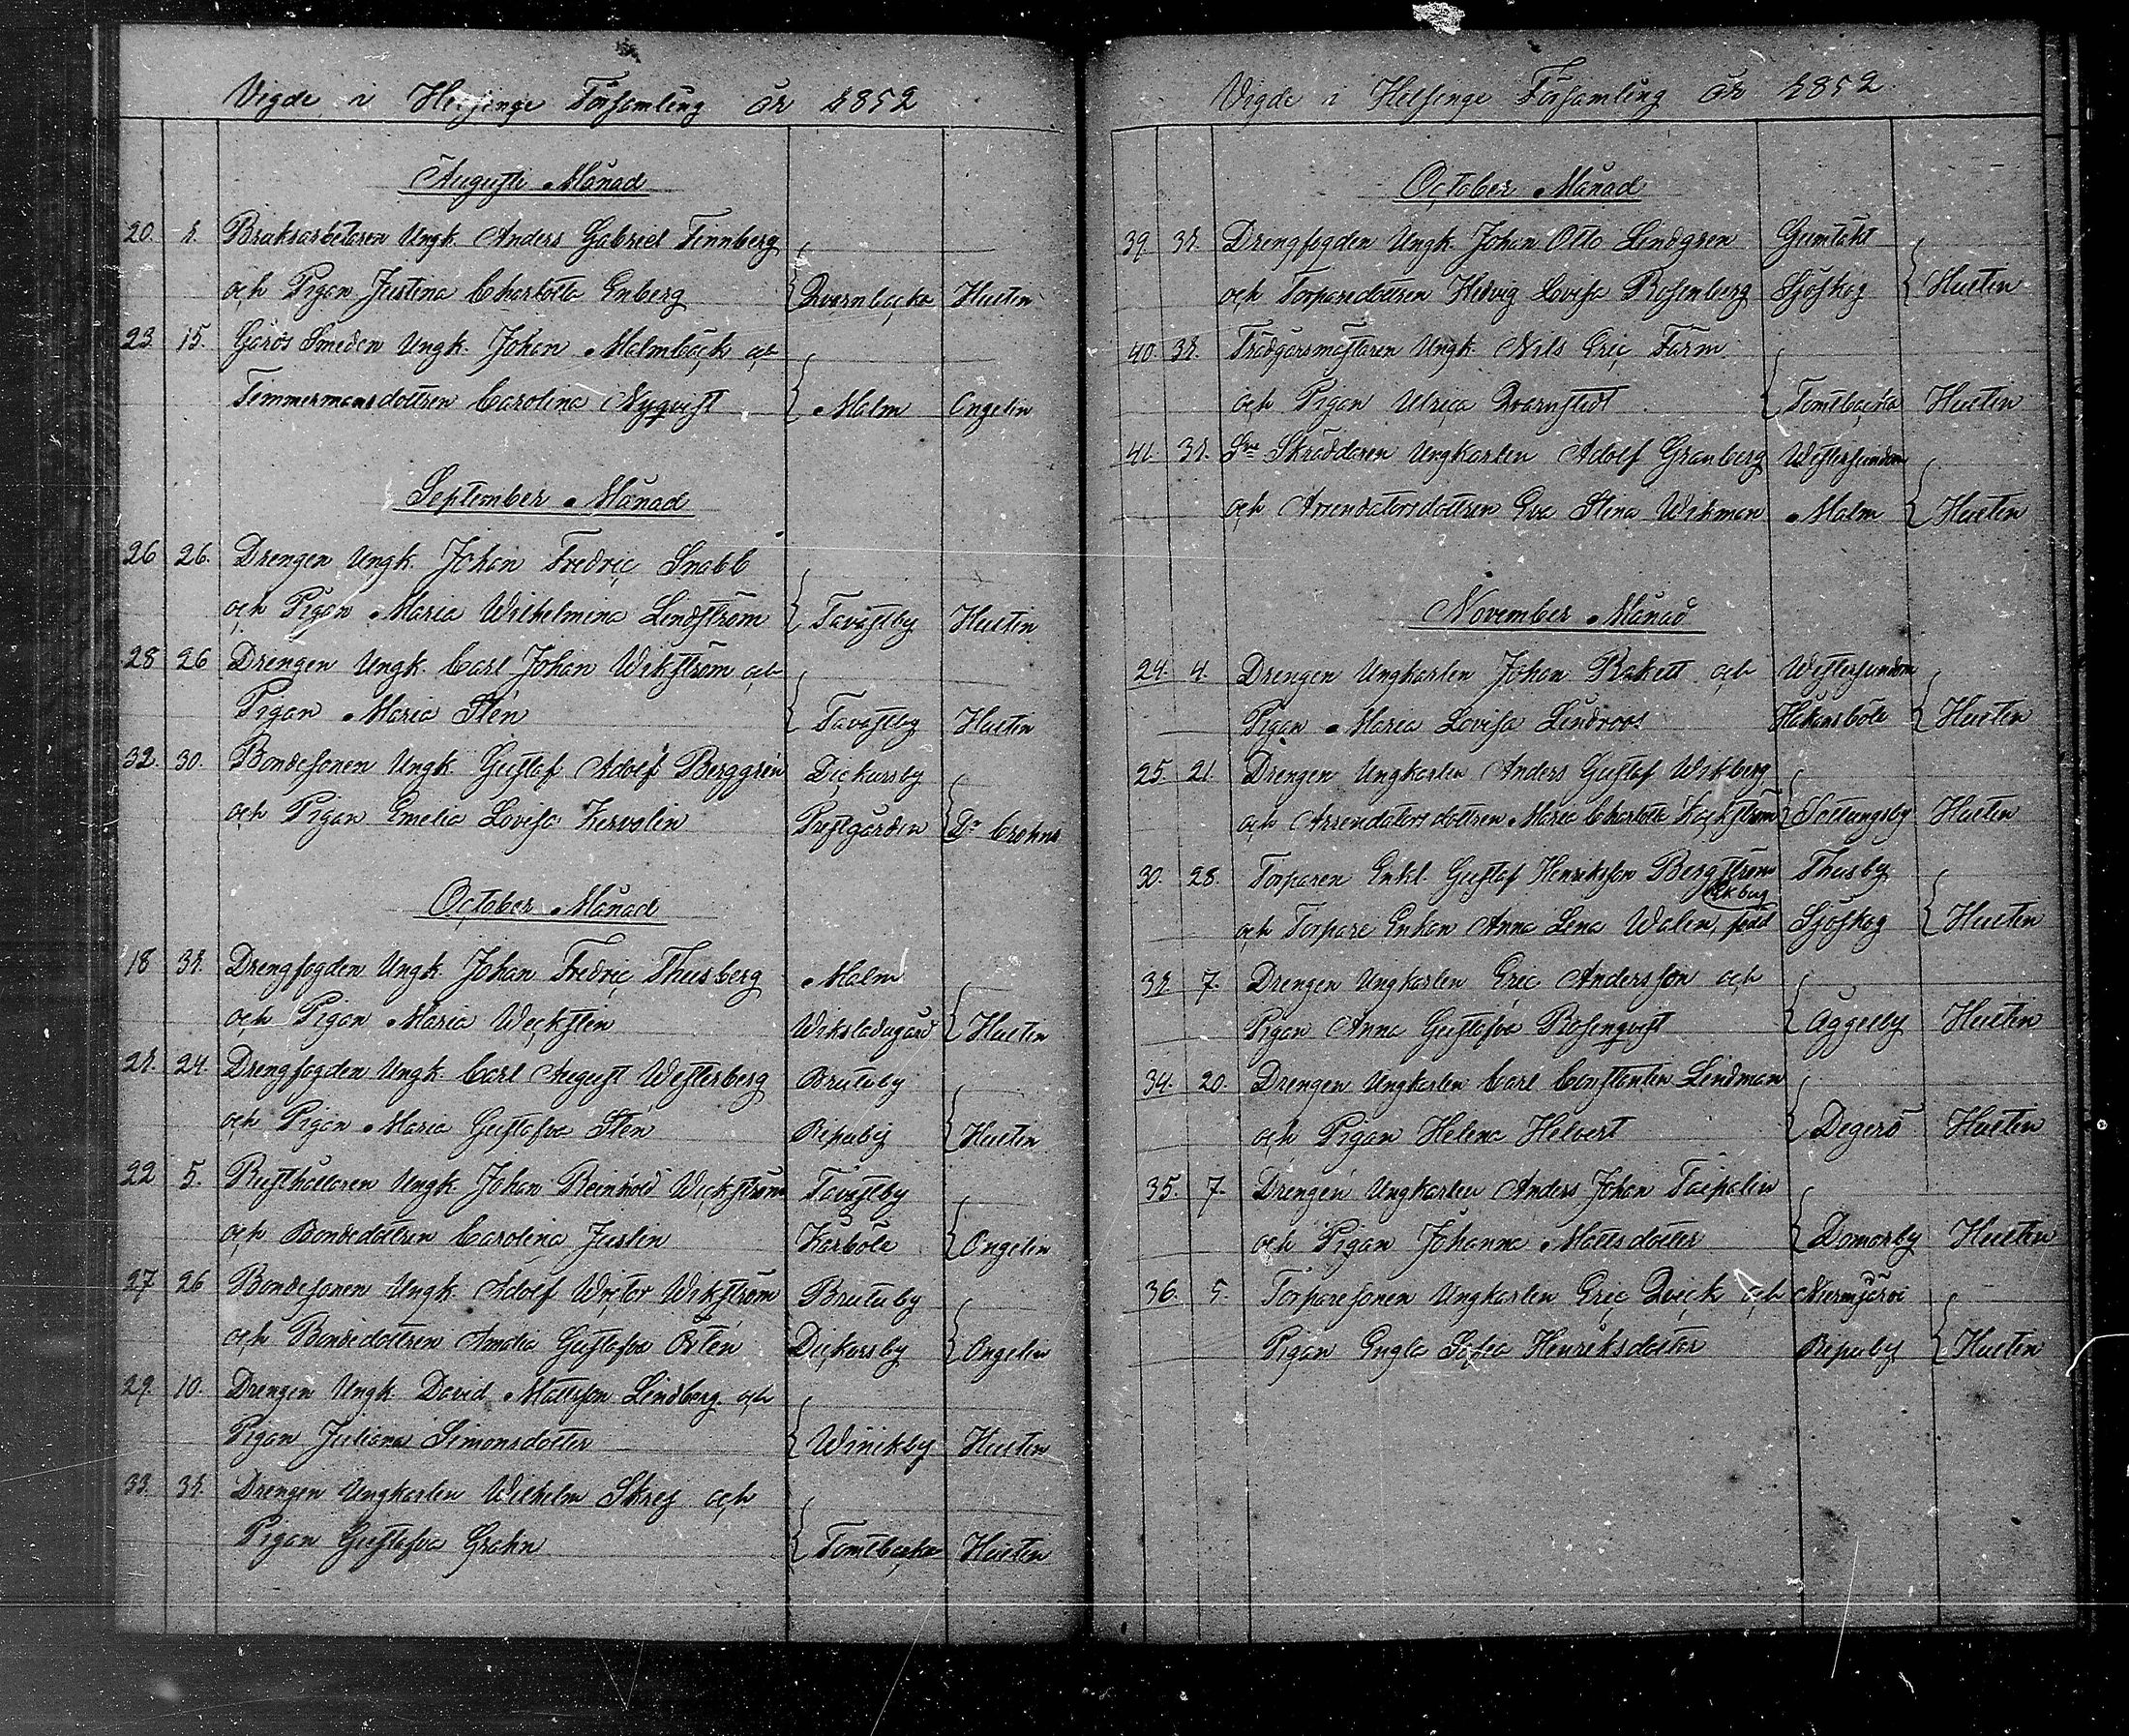 Vigde i Helsinge Församling år 1852
Augusti Månad
20. 1. Bruksarbetaren Ungk. Anders Gabriel Finnberg
och Pigan Justina Charlotta Enberg Qvarnbacka Hustin
23. 15. Gårds Smeden Ungk. Johan Malmbäck och
Timmermansdottren Carolina Nyqvist Malm Ongelin
September Månad
26 26. Drengen Ungk. Johan Fredric Snabb
och Pigan Maria Wilhelmina Lindström Tavastby Hustin
28 26 Drengen Ungk. Carl Johan Wikström och
Pigan Maria Stén Tavastby Hustin
32. 30. Bondesonen Ungk. Gustaf Adolf Berggrén Dickursby
och Pigan Emelia Lovisa Kervolin Prestgården Dr Crohns
October Månad
18 31. Drengfogden Ungk. Johan Fredric Thusberg Malm
och Pigan Maria Weckstén Wiksladugård Hustin
21. 24. Drengfogden Ungk. Carl August Westerberg Brutuby
och Pigan Maria Gustafva Stén Ripuby Hustin
22 5. Rusthållaren Ungk. Johan Reinhold Wickström Tavastby
och Bondedottren Carolina Juslin Kårböle Ongelin
27 26 Bondesonen Ungk. Adolf Wictor Wikström Brutuby
och Bondedottren Amalia Gustafva Ortén Dickursby Ongelin
29. 10. Drengen Ungk. David Mattsson Lindberg och
Pigan Juliana Simonsdotter Winikby Hustin
33. 31. Drengen Ungkarlen Wilhelm Skrej och
Pigan Gustafva Grahn Tomtbacka Hustin
Vigde i Helsinge Församling år 1852
October Månad
39. 31. Drengfogden Ungk. Johan Otto Lindgren Gumtäkt
och Torparedottren Hedvig Lovisa Rosenberg Sjöskog Hustin
40. 31. Trädgårsmästaren Ungk. Nils Eric Farm
och Pigan Ulrica Qvarnstedt Tomtbacka Hustin
41. 31. Skräddaren Ungkarlen Adolf Granberg Westersundom
och Arrendatorsdottren Eva Stina Wikman Malm Hustin
November Månad
24. 4. Drengen Ungkarlen Johan Rakett och Westersundom
Pigan Maria Lovisa Lindroos Håkansböle Hustin
25. 21. Drengen Ungkarlen Anders Gustaf Wikberg
och Arrendatorsdottren Maria Charlotta Käckström Sottungsby Hustin
30. 28. Torparen Enkl. Gustaf Henriksson Bergström Thusby
Ekberg
och Torpare Enkan Anna Lena Walen, född Sjöskog Hustin
31. 7. Drengen Ungkarlen Eric Andersson och
Pigan Anna Gustafva Rosenqvist Åggelby Hustin
34. 20. Drengen Ungkarlen Carl Constantin Lindman
och Pigan Helena Helvert Degerö Hustin
35. 7. Drengen Ungkarlen Anders Johan Taipalin
och Pigan Johanna Mattsdotter Domarby Hustin
36. 5. Torparesonen Ungkarlen Eric Qvick och Nurmijärvi
Pigan Engla Sofia Henriksdotter Ripuby Hustin